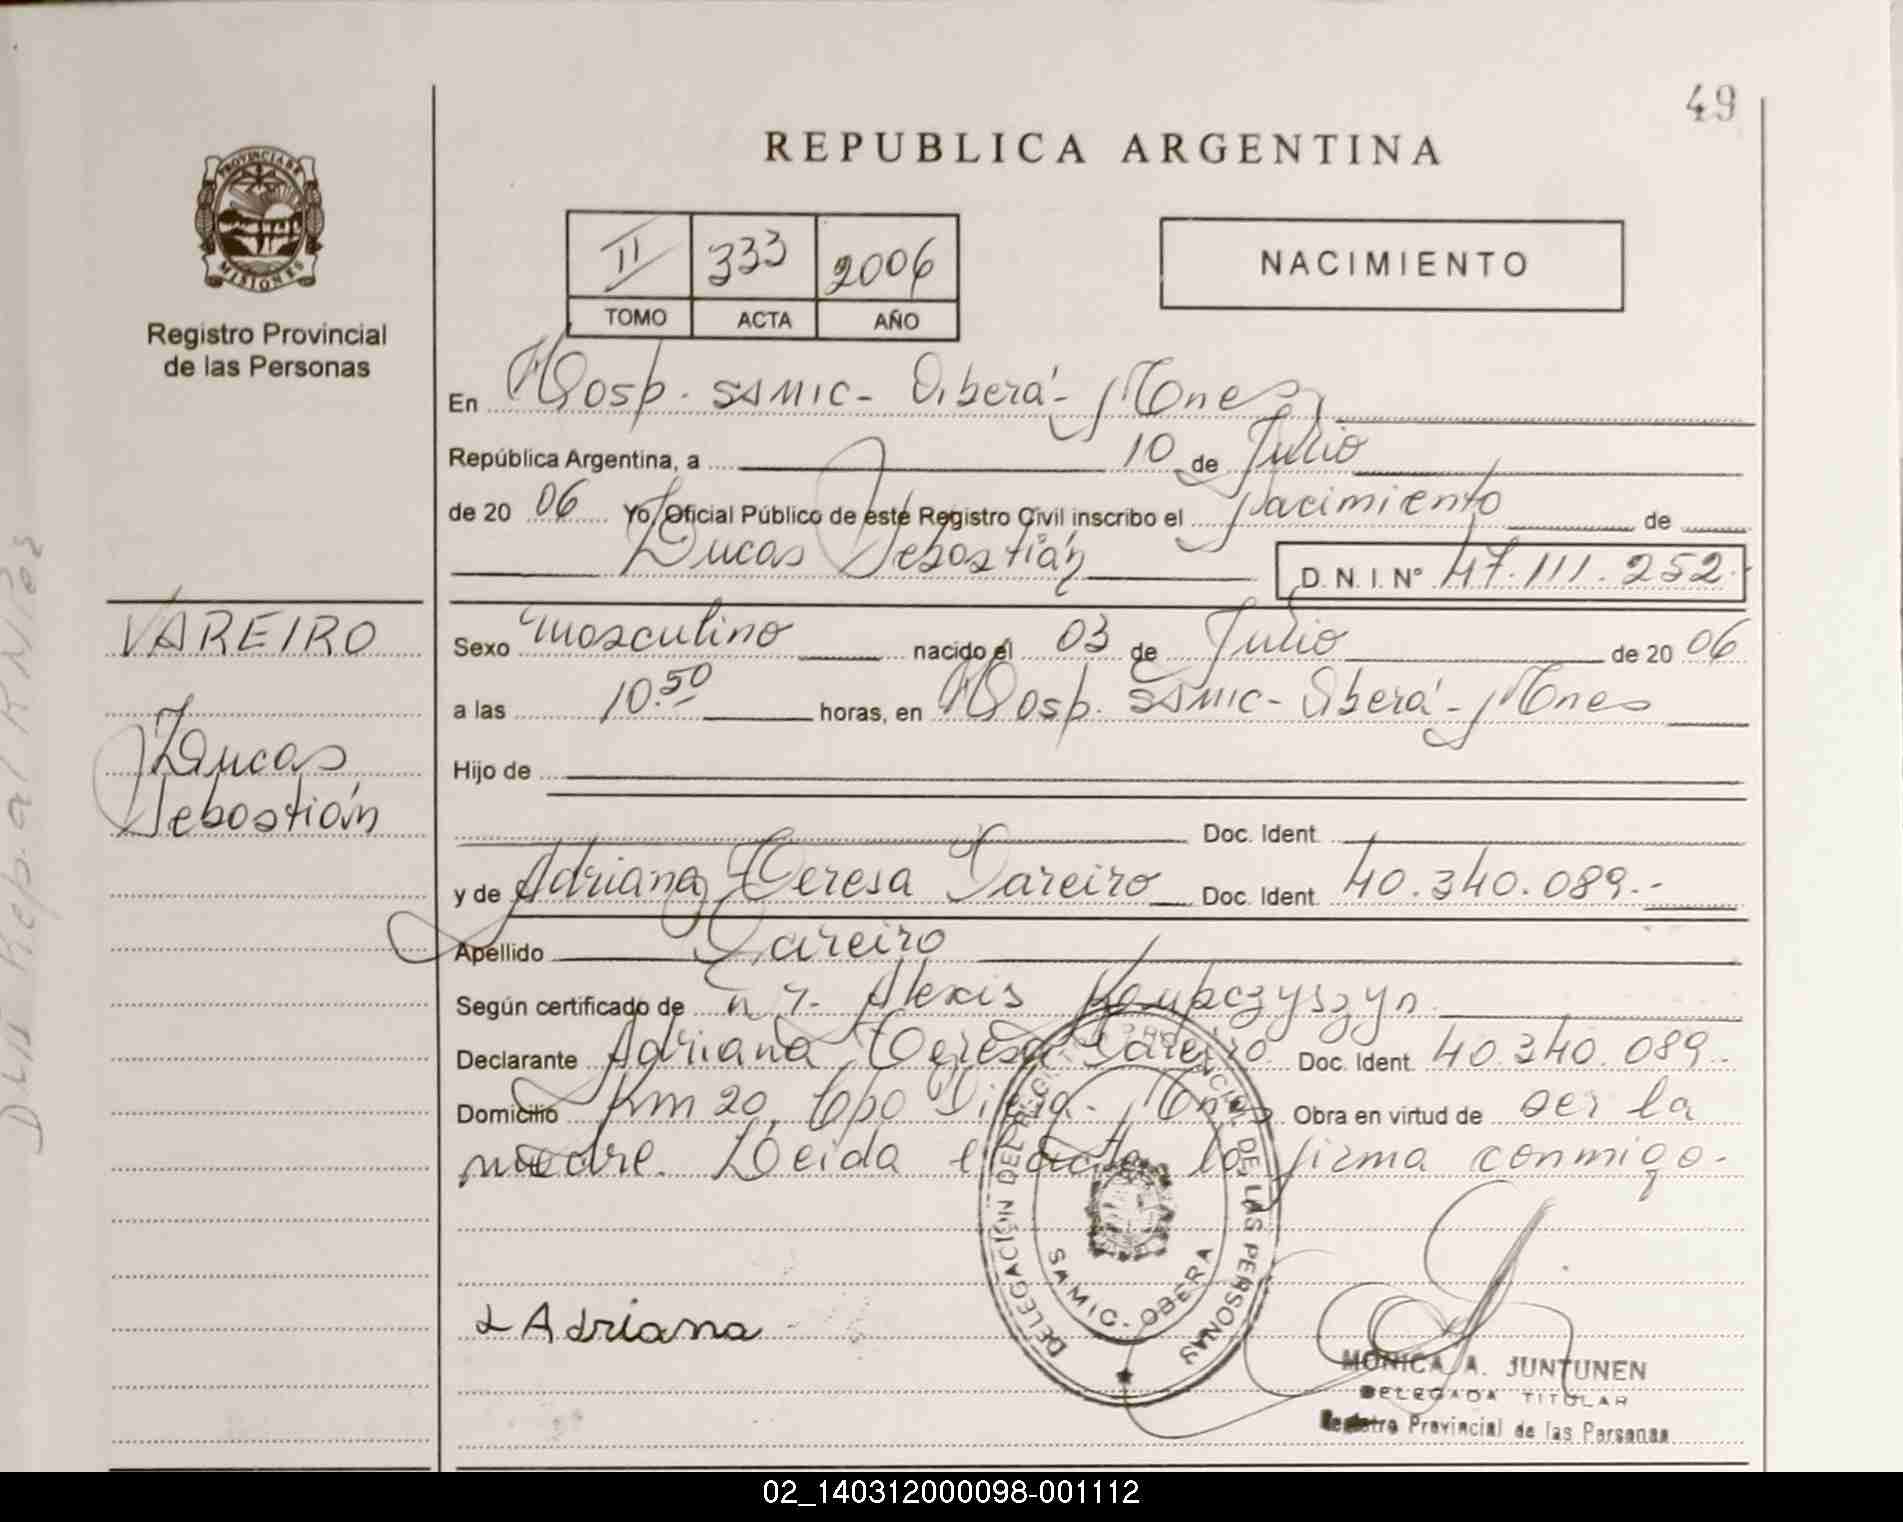 49
REPUBLICA ARGENTINA
PROVINCIA DE
MISIONES
Registro Provincial
de las Personas
II 333 2006
TOMO ACTA AÑO
NACIMIENTO
En Hosp. SAMIC- Oberá- Mnes
República Argentina, a 10 de Julio
de 20 06 Yo, Oficial Público de este Registro Civil inscribo el Nacimiento de
Lucas Sebastián D. N. I. Nº 47.111.252
VAREIRO
Lucas
Sebastián
Sexo masculino nacido el 03 de Julio de 20 06
a las 10.50 horas, en Hosp. SAMIC- Oberá- Mnes
Hijo de
Doc. Ident.
y de Adriana Teresa Vareiro Doc. Ident. 40.340.089.-
Apellido Vareiro
Según certificado de Alexis
Declarante Adriana Teresa Vareiro Doc. Ident. 40.340.089.-
Domicilio Km 20, Cpo Viera- Mnes Obra en virtud de ser la
madre. Leida el acta la firma conmigo.-
DELEGACIÓN DEL REGISTRO PROVINCIAL DE LAS PERSONAS
SAMIC - OBERA
Adriana
MONICA A. JUNTUNEN
DELEGADA TITULAR
Registro Provincial de las Personas
02_140312000098-001112